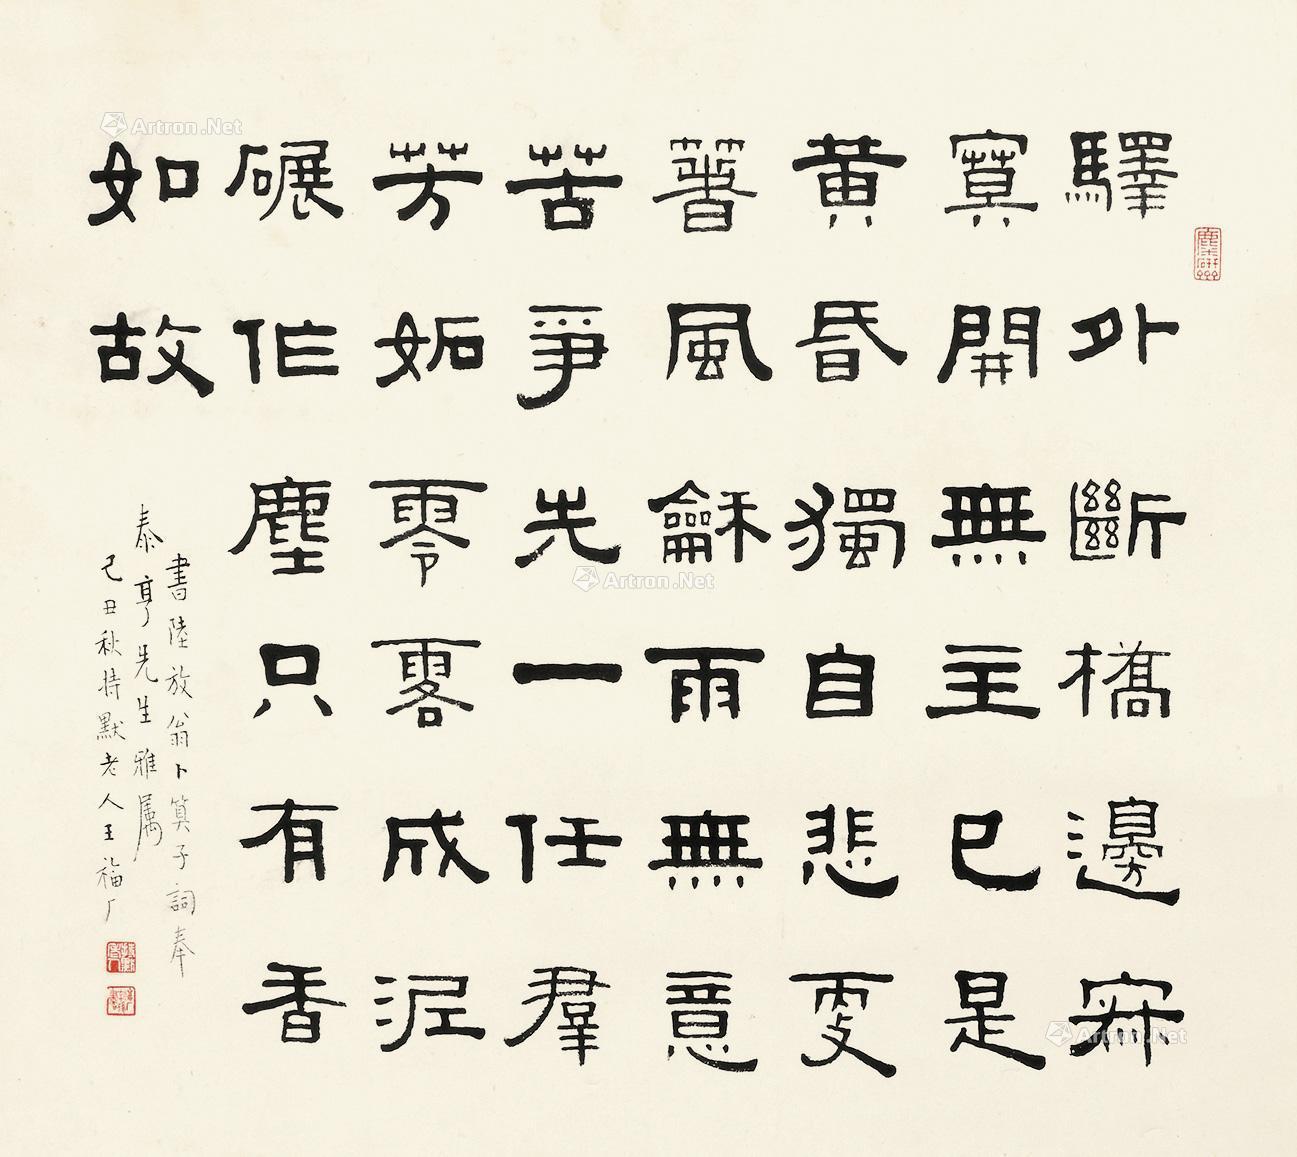 驛外斷橋邊寂
寞開無主已是
黃昏獨自悲更
著風龢雨無意
苦爭先一任羣
芳妬零䨓成泥
碾作塵只有香
如故
書陸放翁卜算子詞奉
泰亨先生雅屬
己丑秋持默老人王福厂
Artron.Net
Artron.Net
Artron.Net